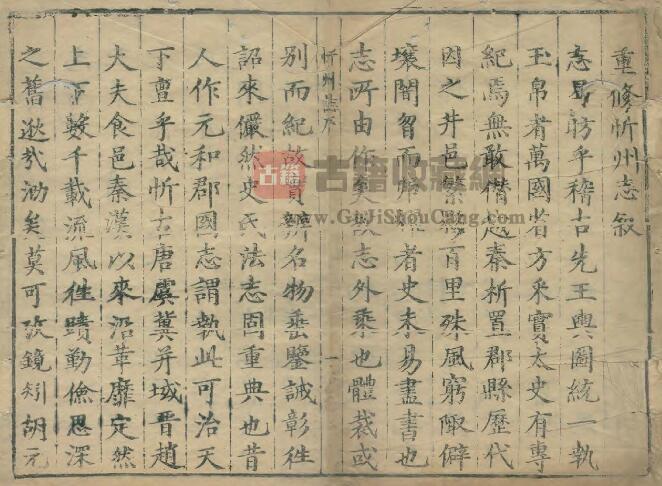 重修忻州志叙
志曷昉乎稽古先王輿圖統一執
玉帛者萬國省方采實太史有專
紀焉無敢僭越秦析置郡縣歷代
因之井邑繁夥百里殊風窮陬僻
壤闇智而者史未易盡書也
志所由作矣志外乘也體裁或
忻州志序
一
別而紀故實辨名物垂鑒誡彰往
詔來儼然史氏法志固重典也昔
人作元和郡國志謂執此可治天
下亶乎哉忻古唐虞冀并域晉趙
大夫食邑秦漢以來沿革靡定然
上下數千載流風往蹟勤儉思深
之舊逖哉泐矣莫可攷鏡矧胡元
古籍
古籍收藏網
www.GuJiShouCang.com